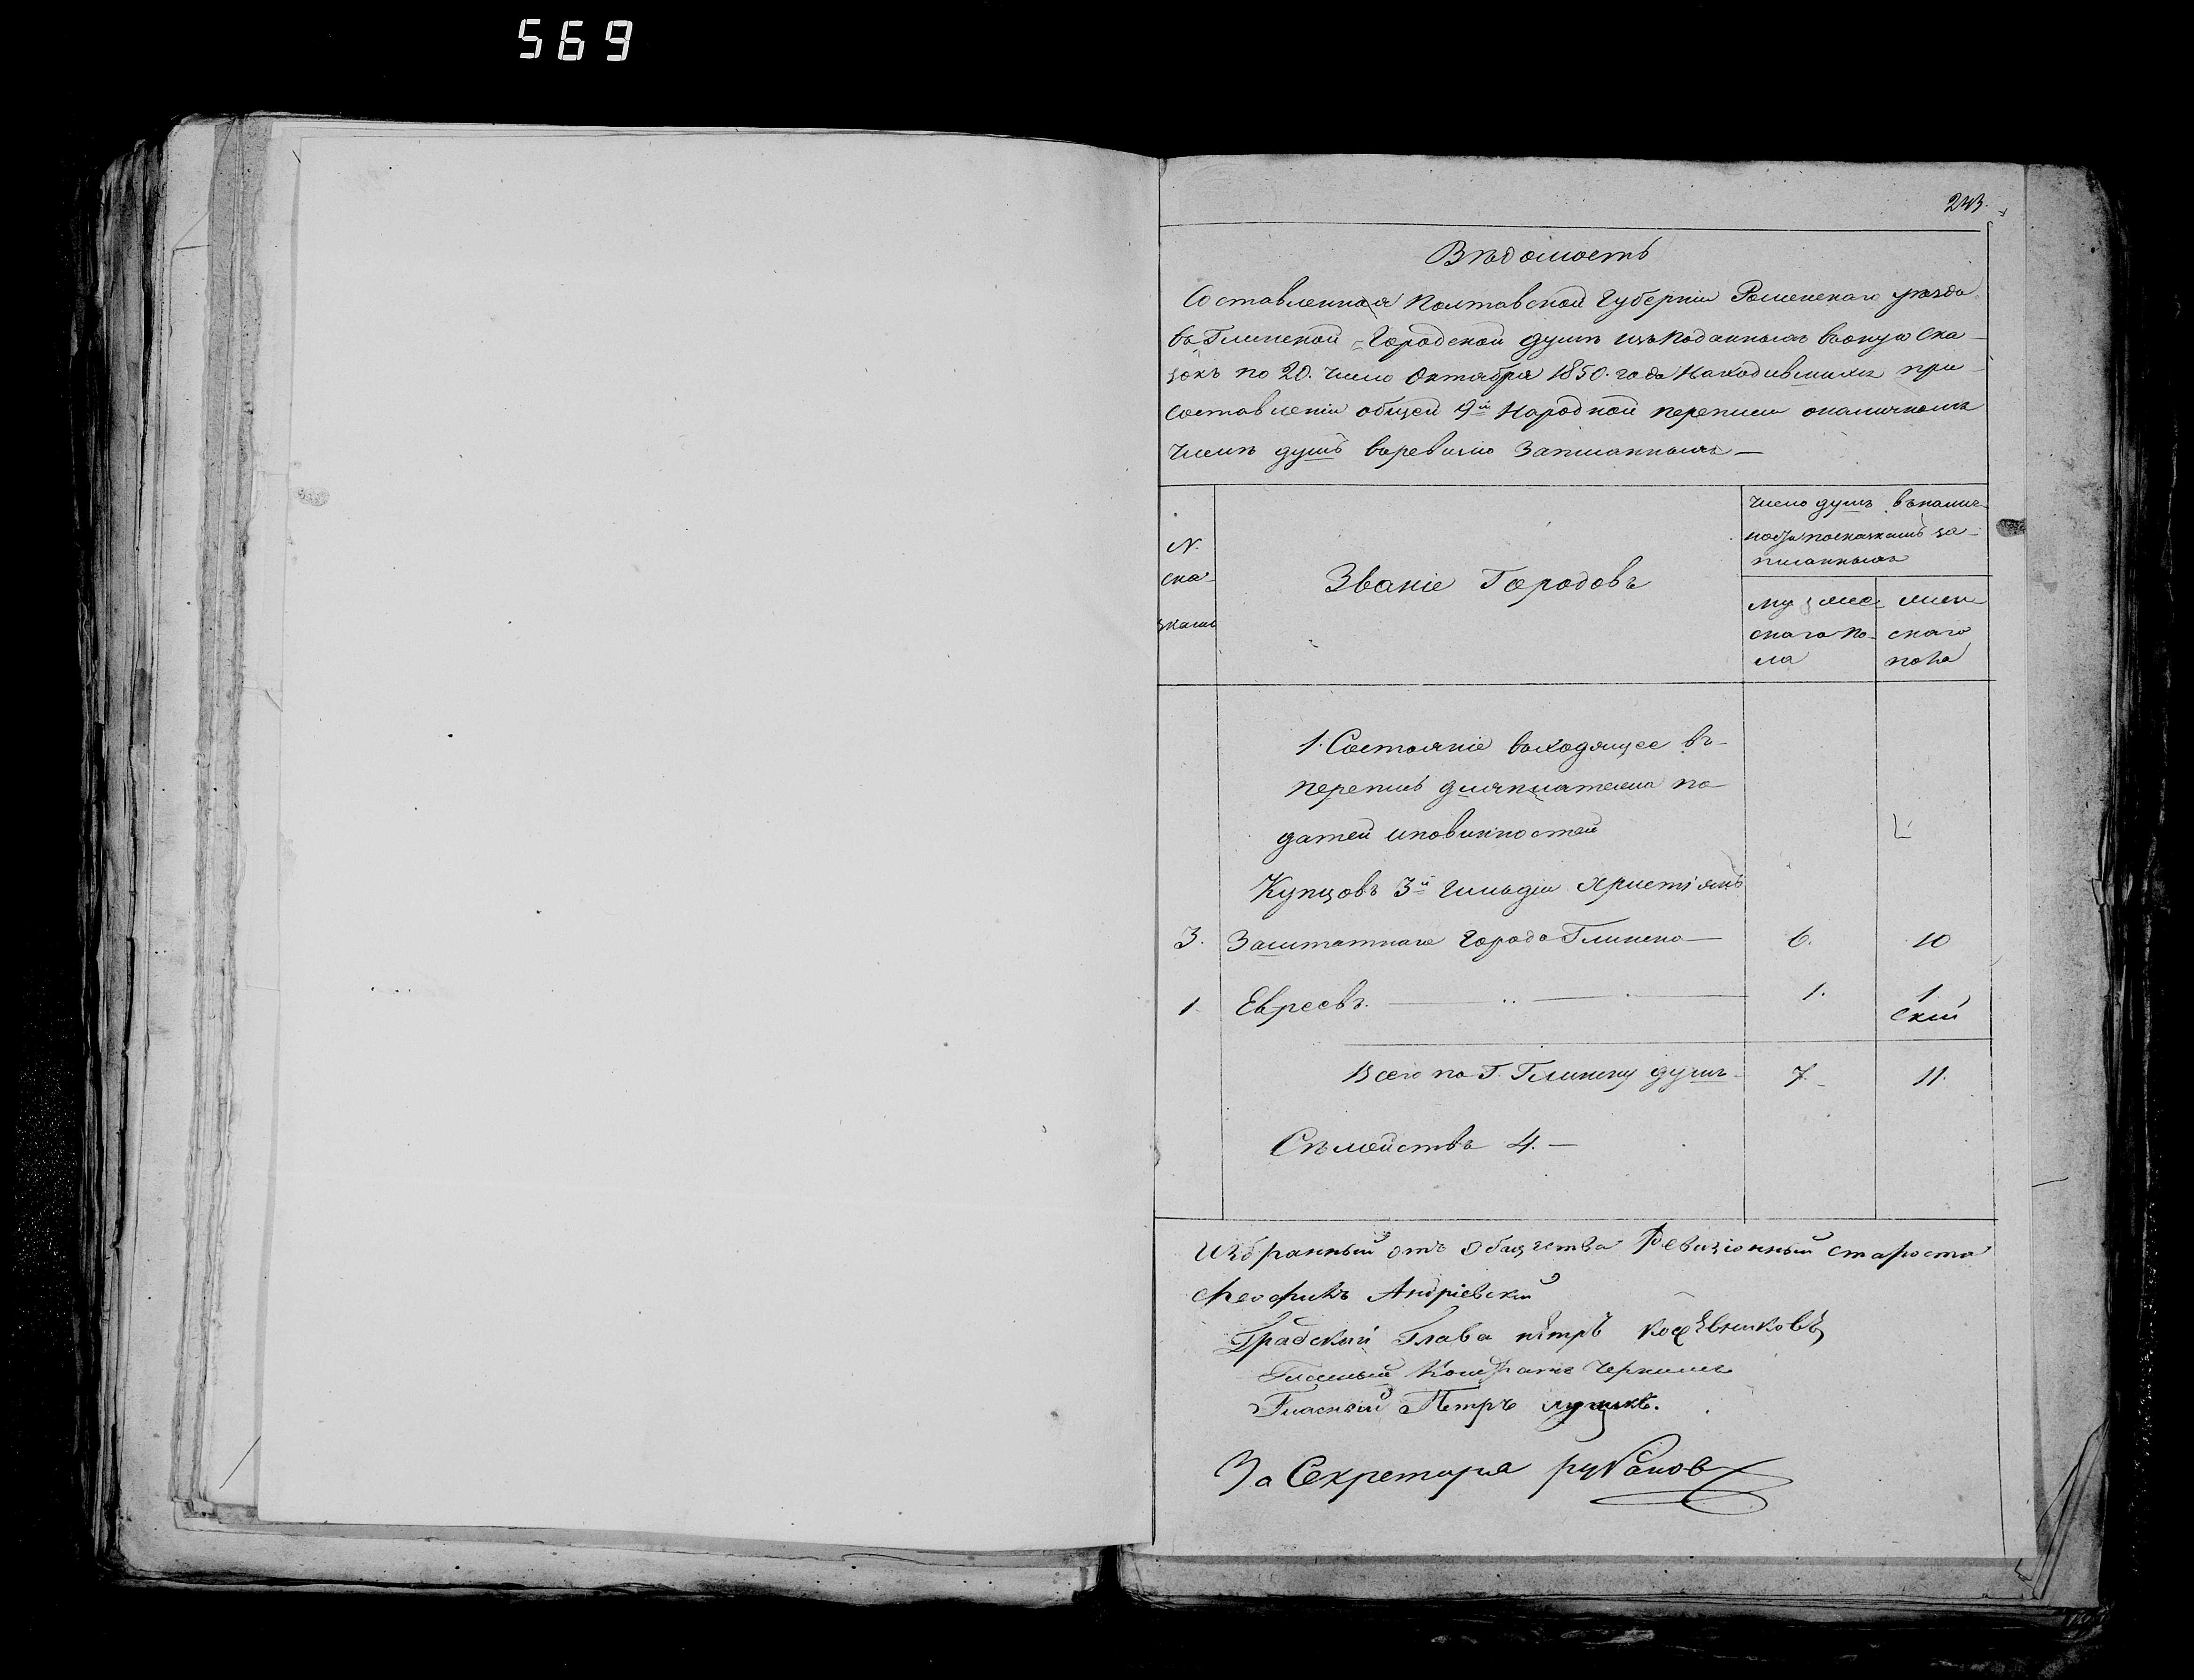 569
243.
Вѣдомость
Составленная Полтавской Губерніи Роменскаго уѣзда
въ Глинской Городской думѣ изъ поданныхъ воную Ска-
зокъ по 20. число Октября 1850. года Находившихся при
составленіи общей 9й Народной переписи оналичномъ
числѣ душъ въревизію Записанныхъ —
N.
ска-
зкамъ
Званіе Городовъ
Число душъ въналич-
ности посказкамъ за-
писанныхъ
мужес
скаго по-
ла
женс
скаго
пола
1. Состояніе входящее въ-
перепись дляплатежа по-
датей иповинностей
Купцовъ 3й Гильдіи Христіянъ
3. Заштатнаго Города Глинска — 6. 10
1 Евреевъ. — 1. 1
Всего по Г. Глинску душъ 7. 11.
Съмействъ 4. —
Избранный отъ Общества Ревизіонный староста
Феофилъ Андріевскій
Градскій Глава пѣтръ Кожѣвниковъ
Гласный Кондратъ
Гласный Петръ
За Секретаря Рубановъ